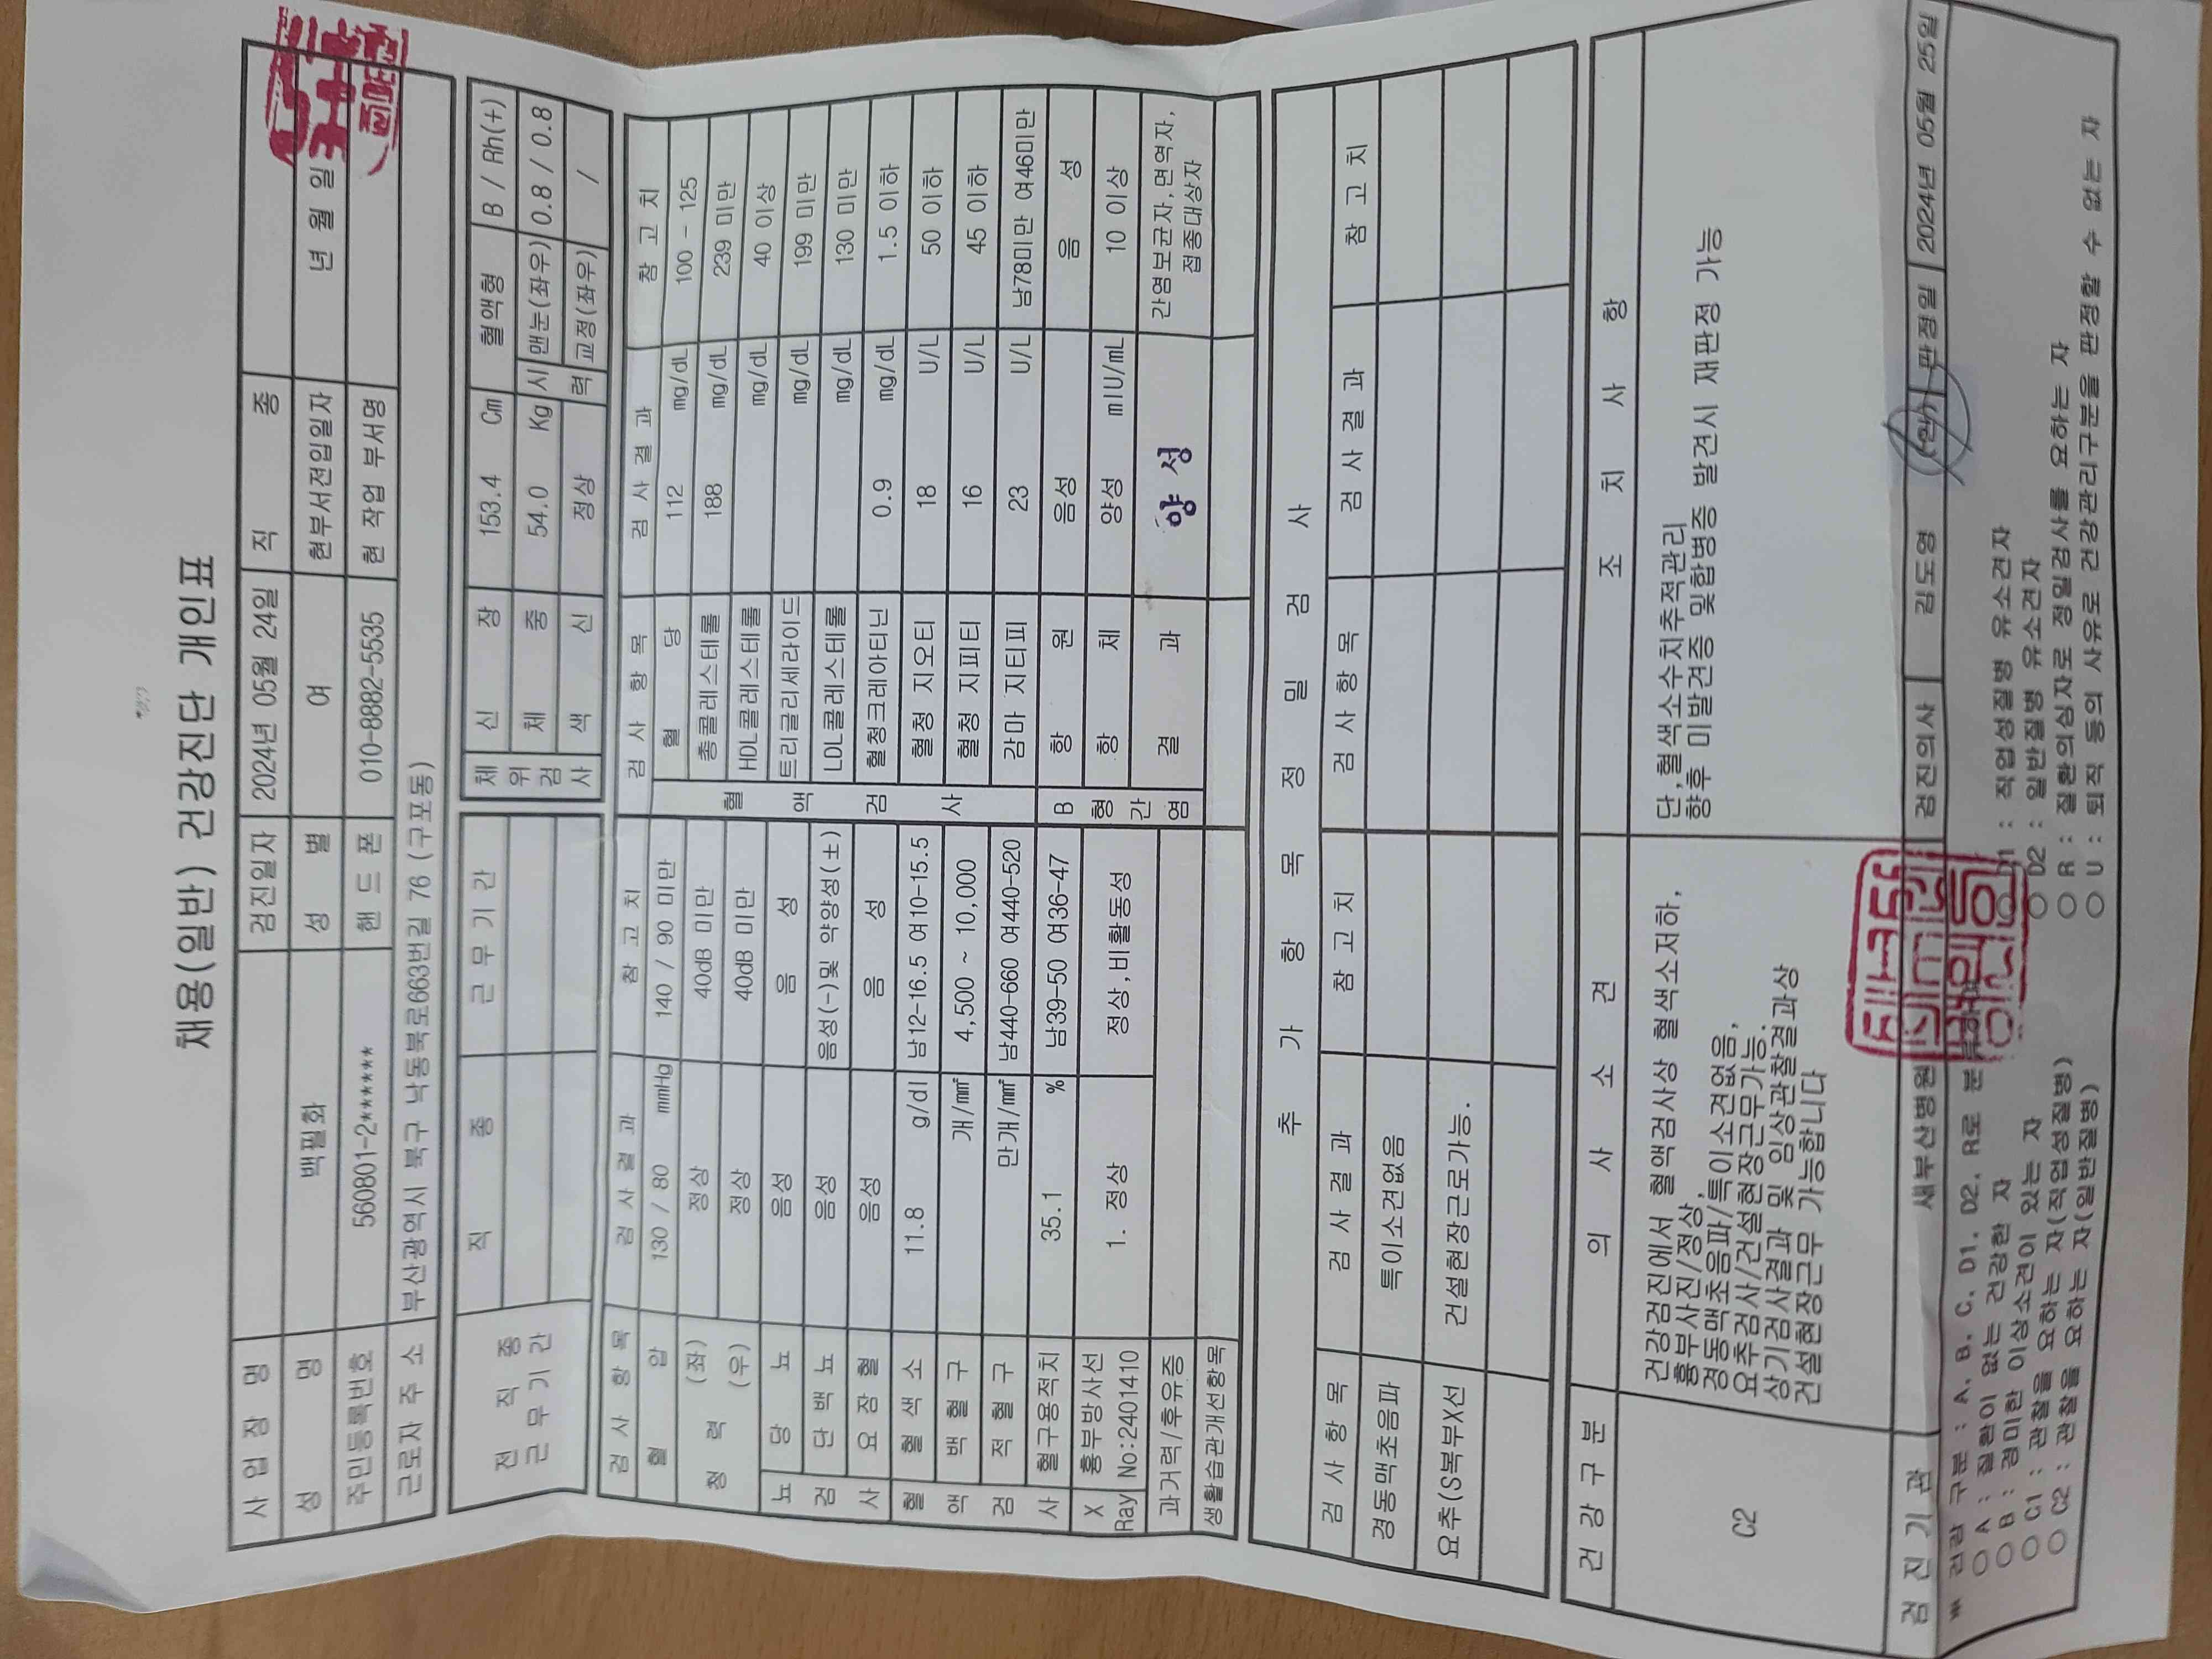 채용(일반) 건강진단 개인표
사 업 장 명 검진일자 2024년 05월 24일 직 종
성 명 백필화 성 별 여 현부서전입일자 년 월 일
주민등록번호 560801-2****** 핸 드 폰 010-8882-5535 현 작업 부서명
근로자 주 소 부산광역시 북구 낙동북로663번길 76 (구포동)
전 직 종 근 무 기 간 직 종 근 무 기 간
체 위 검 사 신 장 153.4 Cm 혈액형 B / Rh(+)
체 중 54.0 Kg 시 력 맨눈(좌우) 0.8 / 0.8
색 신 정상 교정(좌우) /
검 사 항 목 검 사 결 과 참 고 치 검 사 항 목 검 사 결 과 참 고 치
혈 압 130 / 80 mmHg 140 / 90 미만 혈 액 검 사 혈 당 112 mg/dL 100 - 125
청 력 (좌) 정상 40dB 미만 총콜레스테롤 188 mg/dL 239 미만
(우) 정상 40dB 미만 HDL콜레스테롤 mg/dL 40 이상
뇨 검 사 당 뇨 음성 음 성 트리글리세라이드 mg/dL 199 미만
단 백 뇨 음성 음성(-)및 약양성(±) LDL콜레스테롤 mg/dL 130 미만
요 잠 혈 음성 음 성 혈청크레아티닌 0.9 mg/dL 1.5 이하
혈 액 검 사 혈 색 소 11.8 g/dl 남12-16.5 여10-15.5 혈청 지오티 18 U/L 50 이하
백 혈 구 개/㎣ 4,500 ~ 10,000 혈청 지피티 16 U/L 45 이하
적 혈 구 만개/㎣ 남440-660 여440-520 감마 지티피 23 U/L 남78미만 여46미만
혈구용적치 35.1 % 남39-50 여36-47 B 형 간 염 항 원 음성 음 성
X Ray 흉부방사선 No:2401410 1. 정상 정상,비활동성 항 체 양성 mIU/mL 10 이상
과거력/후유증 결 과 양 성 간염보균자,면역자, 접종대상자
생활습관개선항목
추 가 항 목 정 밀 검 사
검 사 항 목 검 사 결 과 참 고 치 검 사 항 목 검 사 결 과 참 고 치
경동맥초음파 특이소견없음
요추(S복부X선 건설현장근로가능.
건 강 구 분 의 사 소 견 조 치 사 항
C2
건강검진에서 혈액검사상 혈색소저하,
흉부사진/정상,
경동맥초음파/특이소견없음,
요추검사/건설현장근무가능.
상기검사결과 및 임상관찰결과상
건설현장근무 가능합니다
단,혈색소수치추적관리
향후 미발견증 및합병증 발견시 재판정 가능
검 진 기 관 새부산병원 검진의사 김도영 (인) 판정일 2024년 05월 25일
※ 건강 구분 : A. B. C. D1. D2. R로 분
○ A : 질환이 없는 건강한 자
○ B : 경미한 이상소견이 있는 자
○ C1 : 관찰을 요하는 자(직업성질병)
○ C2 : 관찰을 요하는 자(일반질병)
○ D1 : 직업성질병 유소견자
○ D2 : 일반질병 유소견자
○ R : 질환의심자로 정밀검사를 요하는 자
○ U : 퇴직 등의 사유로 건강관리구분을 판정할 수 없는 자